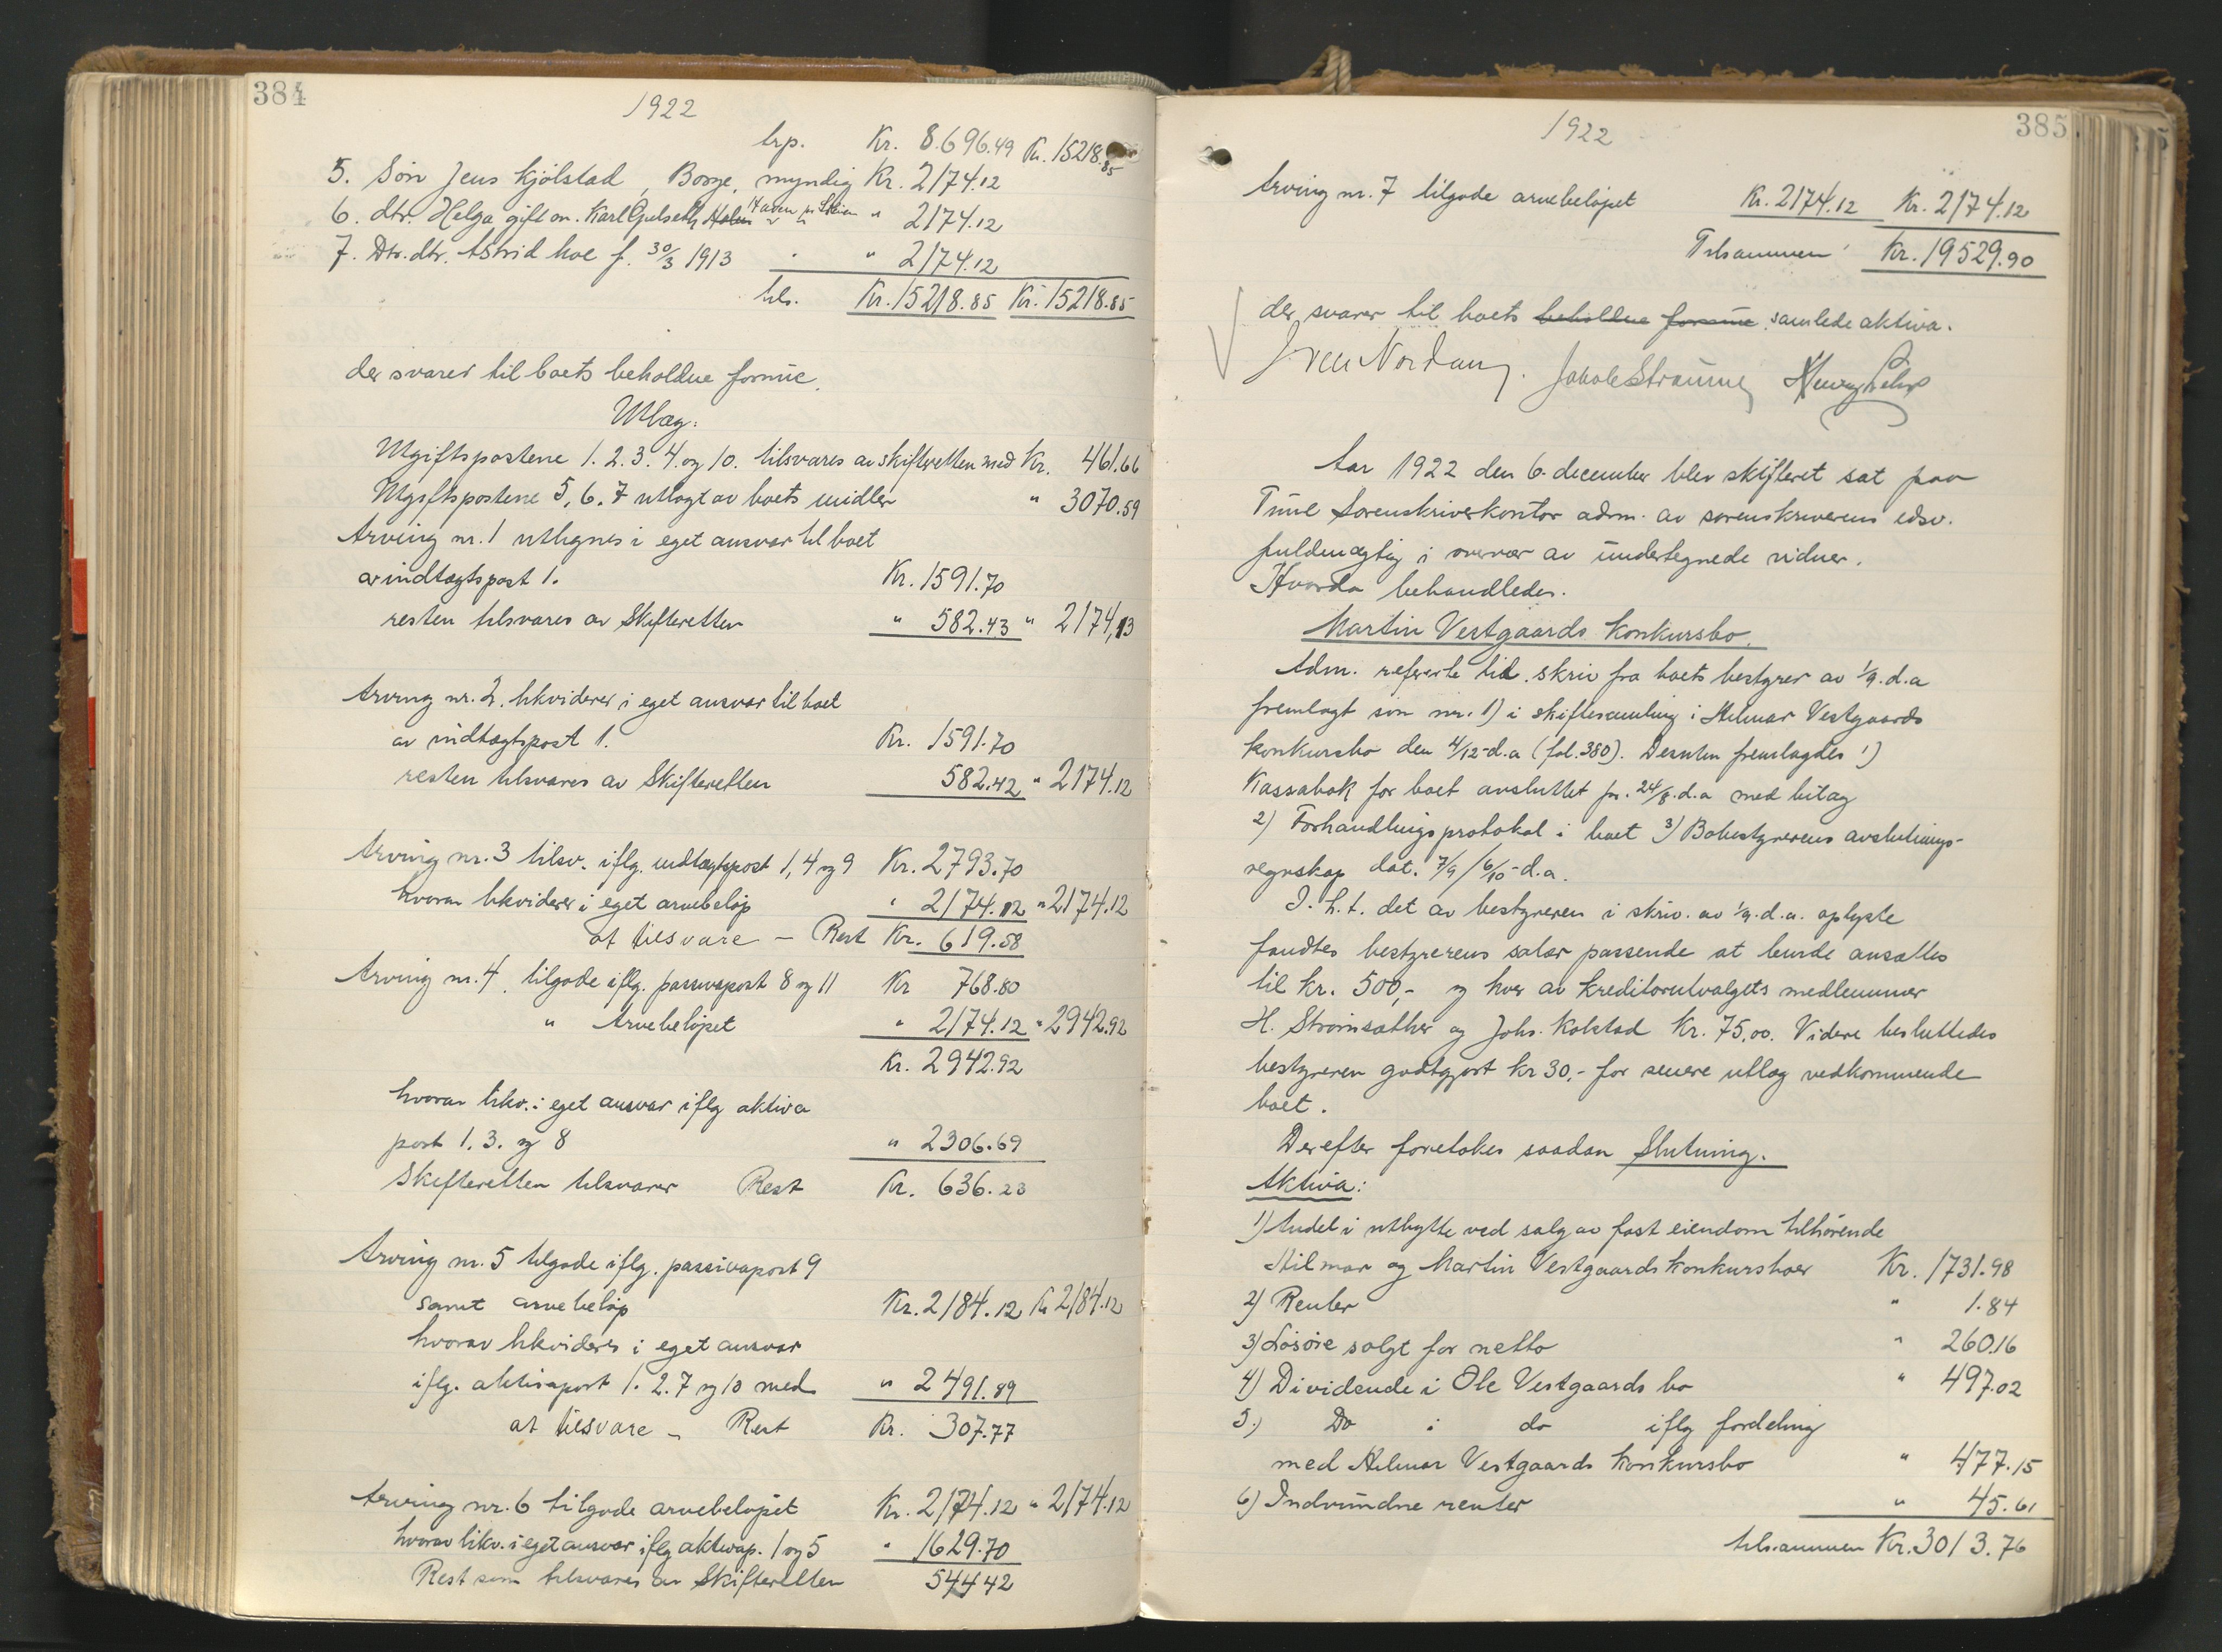 384
1922
trp. Kr. 8.696.49 Kr. 15218.85
5. Søn Jens Kjölstad, Borge, myndig Kr. 2174.12
6. dtr. Helga gift m. Karl Gulseth " 2174.12
7. Dtr.dtr. Astrid Moe f. 30/3 1913 " " 2174.12
tils. Kr. 15218.85 Kr. 15218.85
der svarer til boets beholdne formue.
Utlæg:
Utgiftspostene 1. 2. 3. 4. og 10. tilsvares av skifteretten med Kr. 461.66
Utgiftspostene 5, 6. 7 utlagt av boets midler " 3070.59
Arving nr. 1 utlignes i eget ansvar til boet
av indtægtspost 1. Kr. 1591.70
resten tilsvares av Skifteretten " 582.43 " 2174,13
Arving nr. 2. likviderer i eget ansvar til boet
av indtægtspost 1. Kr. 1591.70
resten tilsvares av Skifteretten 582.42 " 2174.12
Arving nr. 3 tilsv. iflg. indtægtspost 1, 4 og 9 Kr. 2793.70
hvorav likviderer i eget arvebeløp " 2174.12 " 2174.12
at tilsvare - Rest Kr. 619.58
Arving nr. 4. tilgode iflg. passivapost 8 og 11 Kr 768.80
" Arvebeløpet " 2174.12 " 2942.92
Kr. 2942.92
hvorav likv. i eget ansvar iflg aktiva
post 1. 3. og 8 " 2306.69
Skifteretten tilsvarer Rest Kr. 636.23
Arving nr. 5 tilgode iflg. passivapost 9
samt arvebeløp Kr. 2184.12 Kr 2184.12
hvorav likvideres i eget ansvar
iflg. aktivapost 1. 2. 7 og 10 med " 2491.89
at tilsvare - Rest Kr. 307.77
Arving nr. 6 tilgode arvebeløpet Kr. 2174.12 " 2174.12
hvorav likv. i eget ansvar iflg aktivap. 1 og 5 " 1629.70
Rest som tilsvares av Skifteretten 544.42
385
1922
Arving nr. 7 tilgode arvebeløpet Kr. 2174.12 Kr. 2174.12
Tilsammen Kr. 19529.90
der svarer til boets beholdne formue samlede aktiva.
Aar 1922 den 6. december blev skifteret sat paa
Tune Sorenskriverkontor adm. av sorenskriverens edsv.
fuldmægtig i overvær av undertegnede vidner.
Hvorda behandledes.
Martin Vestgaards Konkursbo.
Adm. refererte til skriv fra boets bestyrer av 1/9. d.a
fremlagt som nr. 1) i skiftesamling i Hilmar Vestgaards
konkursbo den 4/12 d.a (fol. 380). Desuten fremlagdes 1)
Kassabok for boet avsluttet pr. 24/8. d.a med bilag
2) Forhandlingsprotokol i boet 3) Bobestyrerens avslutnings-
regnskap dat. 7/9 / 6/10 - d.a.
I. h. t. det av bestyreren i skriv. av 1/9. d.a. oplyste
fandtes bestyrerens salær passende at burde ansættes
til kr. 500,- og hver av kreditorutvalgets medlemmer
H. Strømsæther og Johs. Kolstad Kr. 75,00. Videre besluttedes
bestyreren godtgjort kr 30.- for senere utlæg vedkommende
boet.
Derefter foretokes saadan Slutning.
Aktiva:
1) Andel i utbytte ved salg av fast eiendom tilhørende
Hilmar og Martin Vestgaards konkursboer Kr. 1731.98
2) Renter " 1.84
3) Løsøre solgt for netto " 260.16
4) Dividende i Ole Vestgaards bo " 497.02
5.) Do i do iflg fordeling
med Hilmar Vestgaards Konkursbo " 477.15
6) Indvundne renter " 45.61
tilsammen Kr. 3013.76